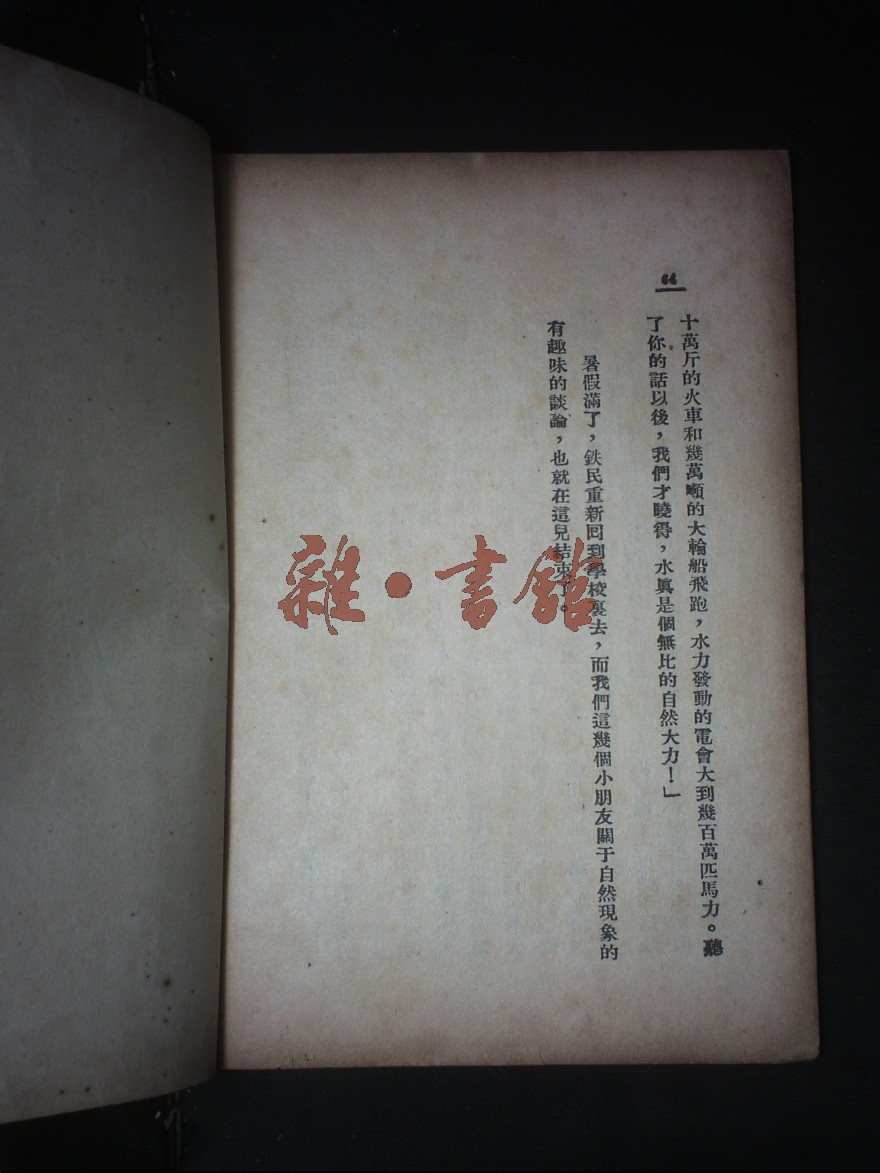 64
十萬斤的火車和幾萬噸的大輪船飛跑，水力發動的電會大到幾百萬匹馬力。聽
了你的話以後，我們才曉得，水眞是個無比的自然大力！」
暑假滿了，鉄民重新回到學校裏去，而我們這幾個小朋友關于自然現象的
有趣味的談論，也就在這兒結束了。
雜·書館